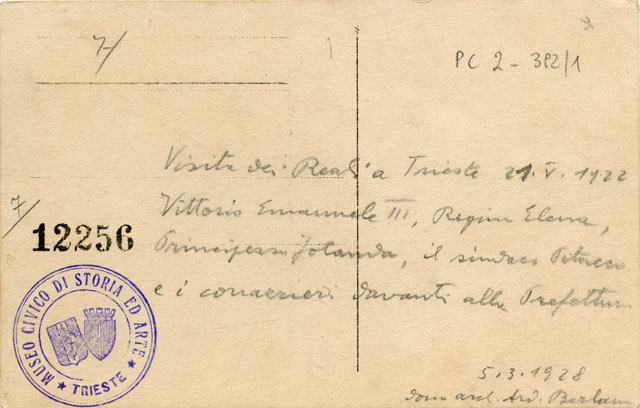 7/
PC 2 - 392/1
Visita dei Reali a Trieste 21. V. 1922
7/
Vittorio Emanuele III, Regina Elena,
12256
Principessa Jolanda, il sindaco Pitacco
e i consiglieri davanti alla Prefettura
MUSEO CIVICO DI STORIA ED ARTE
★ TRIESTE ★
5.3.1928
dono arch. Ard. Berlam